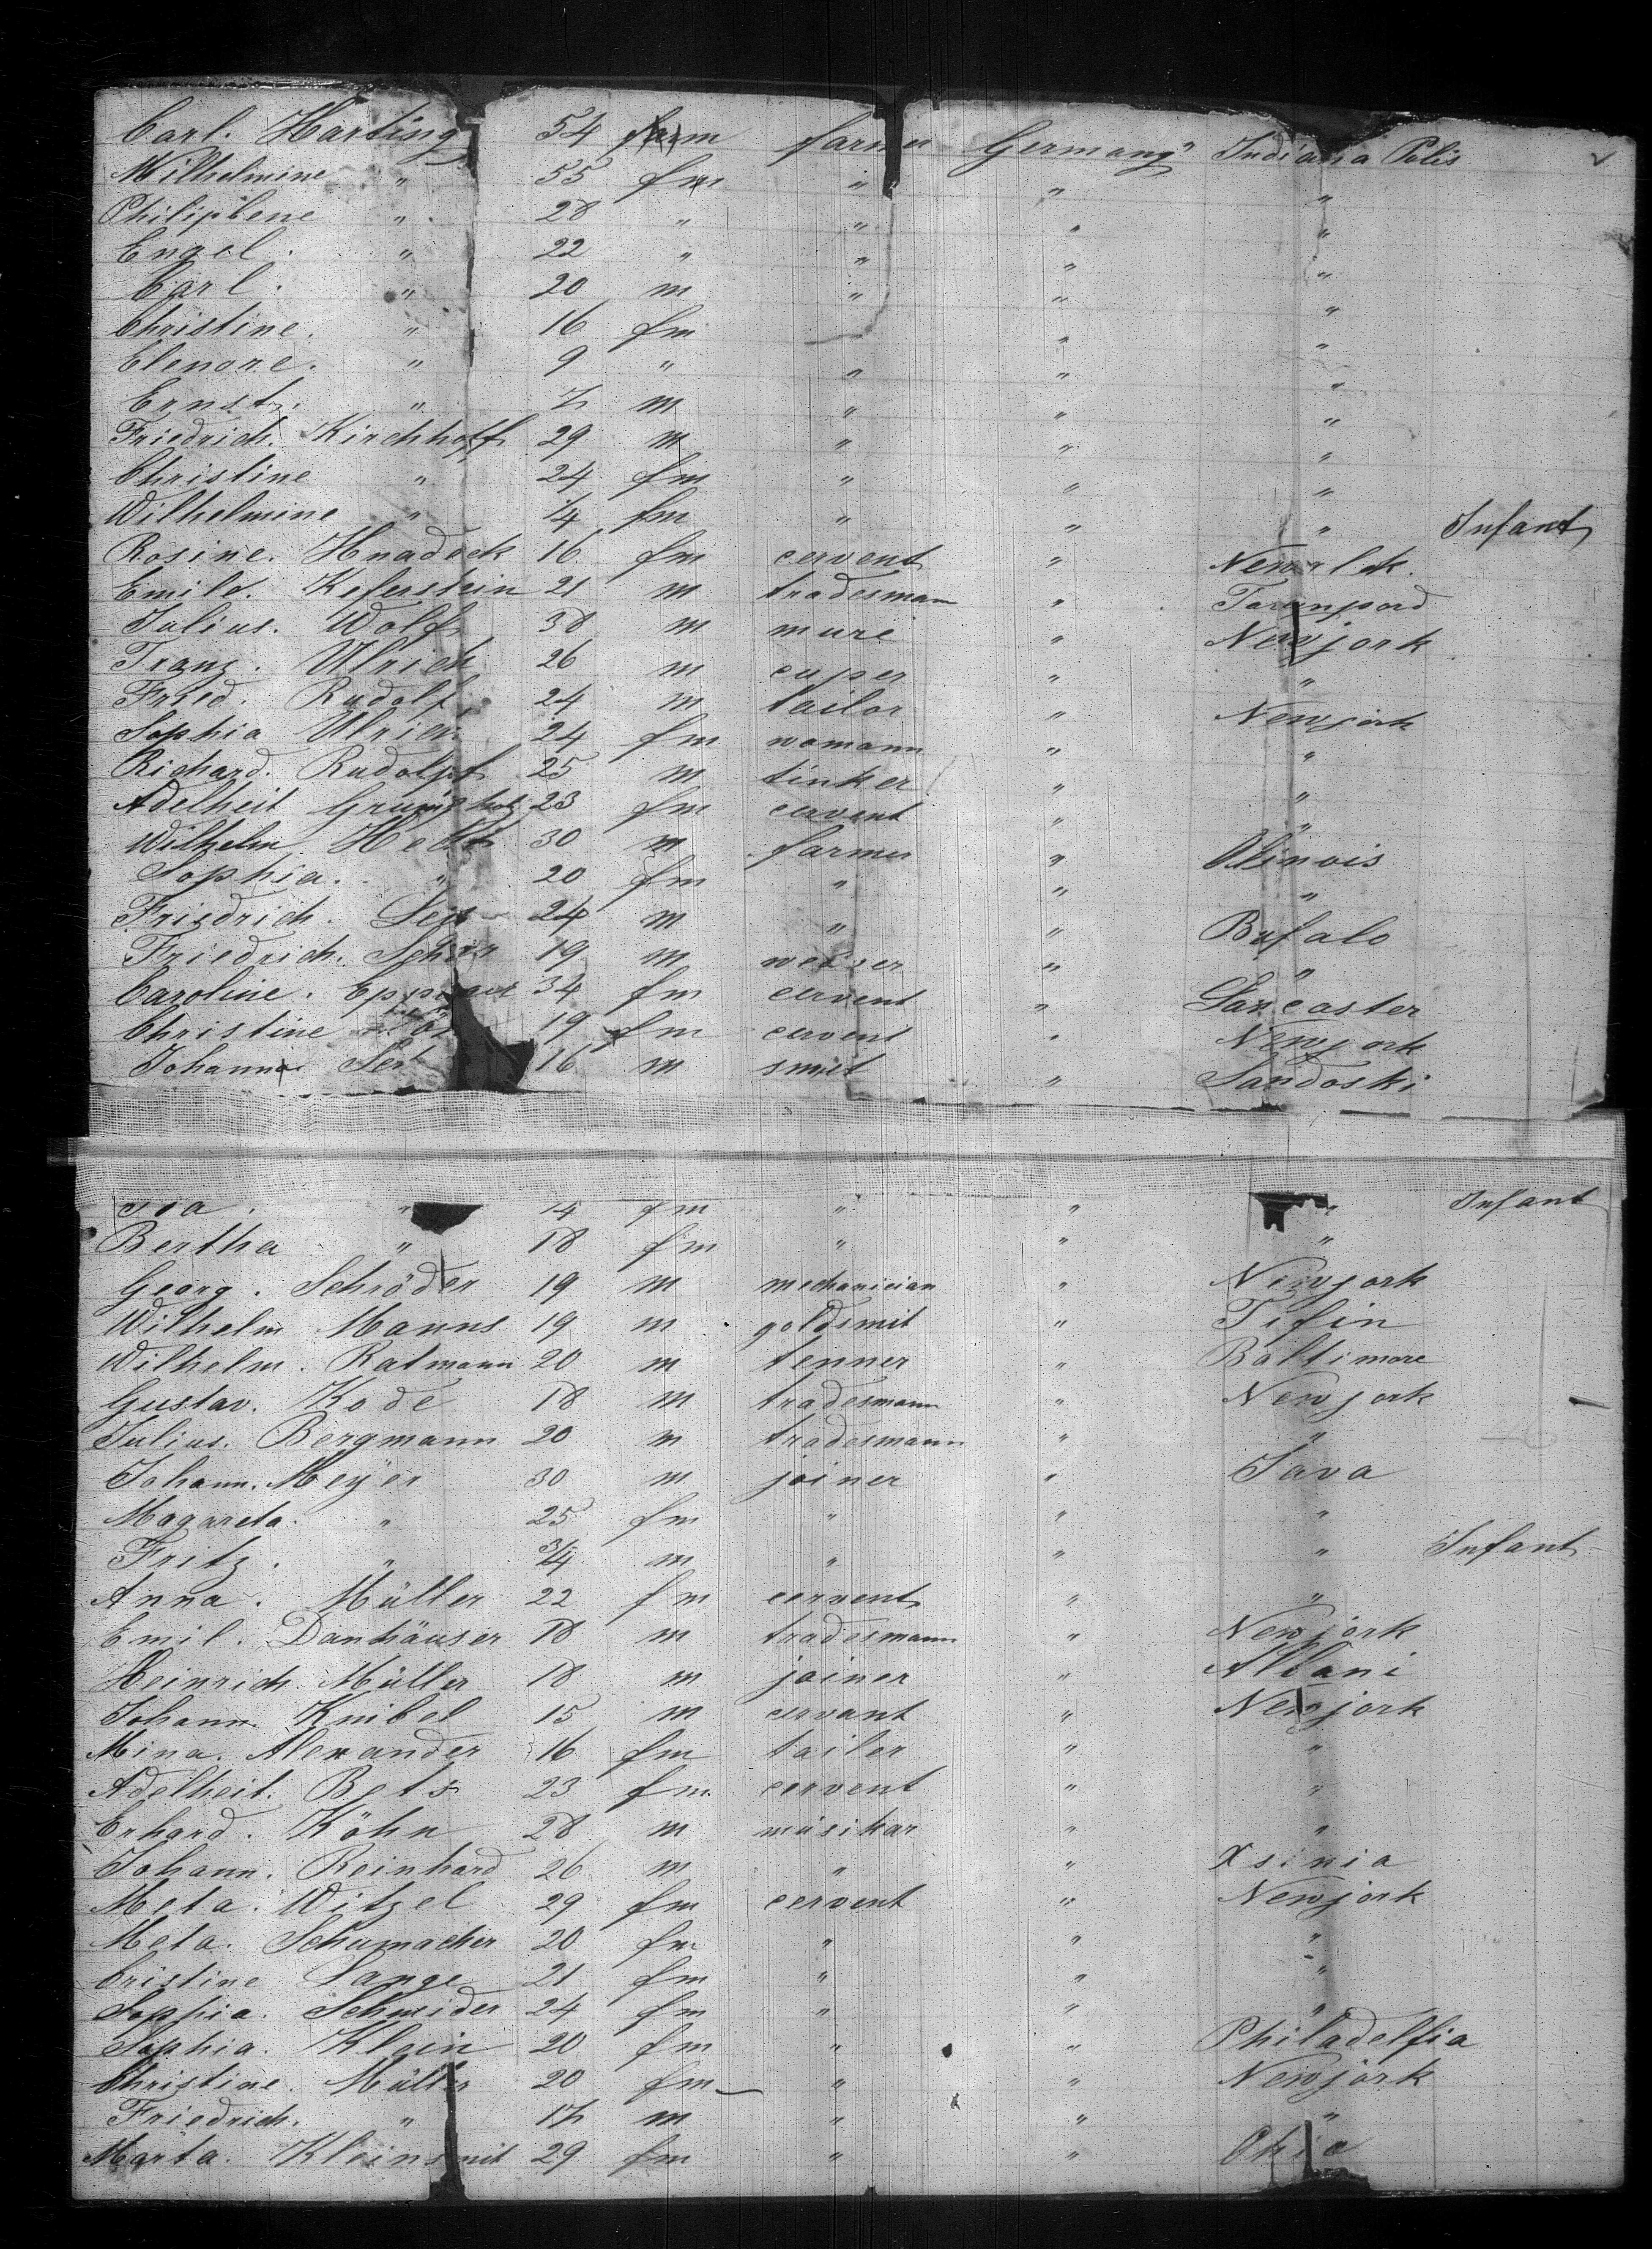 Carl. Harting 54 m farmer Germany Indiana Polis
Wilhelmine " 55 fm " " "
Philiplene " 28 " " " "
Engel. " 22 " " " "
Carl. " 20 m " " "
Christine. " 16 fm " "
Elenore. " 9 " " " "
Ernst. " 7 m " " "
Friedrich. Kirchhoff 29 m " " "
Christine " 24 fm " " "
Wilhelmine " 1/4 fm " " " Infant
Rosine. Hnadeck 16 fm cervent "
Emile. Keferstein 21 m tradesmann "
Julius. Wolf 38 m mure " Newjork
Franz. Ulrich 26 m cuper " "
Fried. Rudolf 24 m tailor " Newjork
Sophia Ulrich 24 fm womann " "
Richard. Rudolph 25 m tinker " "
Adelheit 23 fm cervent " "
Wilhelm. Helt 30 m farmer " Olinois
Sophia. " 20 fm " " "
Friedrich. 24 m " " Bufalo
Friedrich. 19 m " "
Caroline. 34 fm cervent " Lancaster
Christine 19 fm cervent " Newjork
Johann 16 m smit " Sandoski
" 1/4 fm " " " Infant
Bertha " 18 fm " " "
Georg. Schröder 19 m mechanician " Newjork
Wilhelm Manns 19 m goldsmit " Tifin
Wilhelm. Ratmann 20 m tenner " Baltimore
Gustav. Kode 18 m tradesmann " Newjork
Julius. Bergmann 20 m tradesmann " "
Johann. Meyer 30 m joiner " Java
Magareta. " 25 fm " " "
Fritz. " 3/4 m " " " Infant
Anna. Müller 22 fm cervent " "
Emil. Danhäuser 18 m tradesmann " Newjork
Heinrich. Müller 18 m joiner " Albani
Johann. Knibel 15 m cervant " Newjork
Mina. Alexander 16 fm tailor " "
Adelheit. Bets 23 fm. cervent " "
Erhard. Köhn 28 m müsikar " "
Johann. Reinhard 26 m " " Xsinia
Meta. Witzel 29 fm cervent " Newjork
Meta. Schumacher 20 fm " " "
Cristine Lange 21 fm " " "
Sophia. Schneider 24 fm " " "
Sophia. Klein 20 fm " " Philadelfia
Christine. Müller 20 fm " " Newjork
Friedrich. " 17 m " " "
Marta. Kleinsmit 29 fm " " Ohio